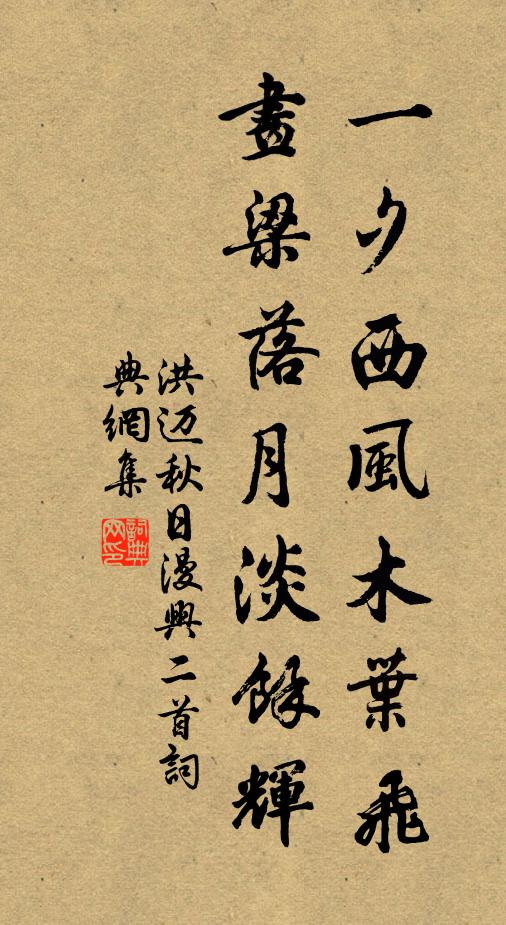 一夕西風木葉飛
畫梁落月淡餘輝
洪迈秋日漫興二首詞
典網集
詞典網印